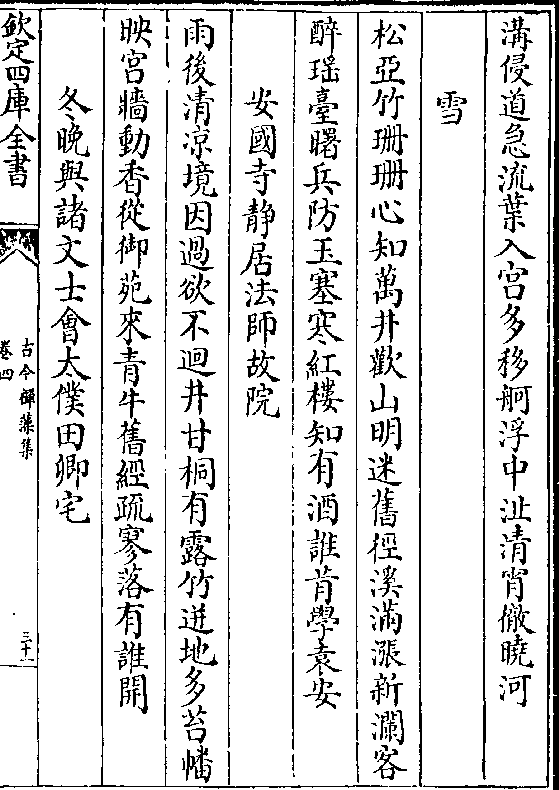 溝侵道急流葉入宮多移舸浮中沚清宵徹曉河
雪
松亞竹珊珊心知萬井歡山明迷舊徑溪滿漲新瀾客
醉瑶臺曙兵防玉塞寒紅樓知有酒誰肯學袁安
安國寺靜居法師故院
雨後清凉境因過欲不迴井甘桐有露竹迸地多苔幡
映宮牆動香從御苑來青牛舊經疏寥落有誰開
冬晚與諸文士會太僕田卿宅
欽定四庫全書
古今禪藻集
卷四
三十一